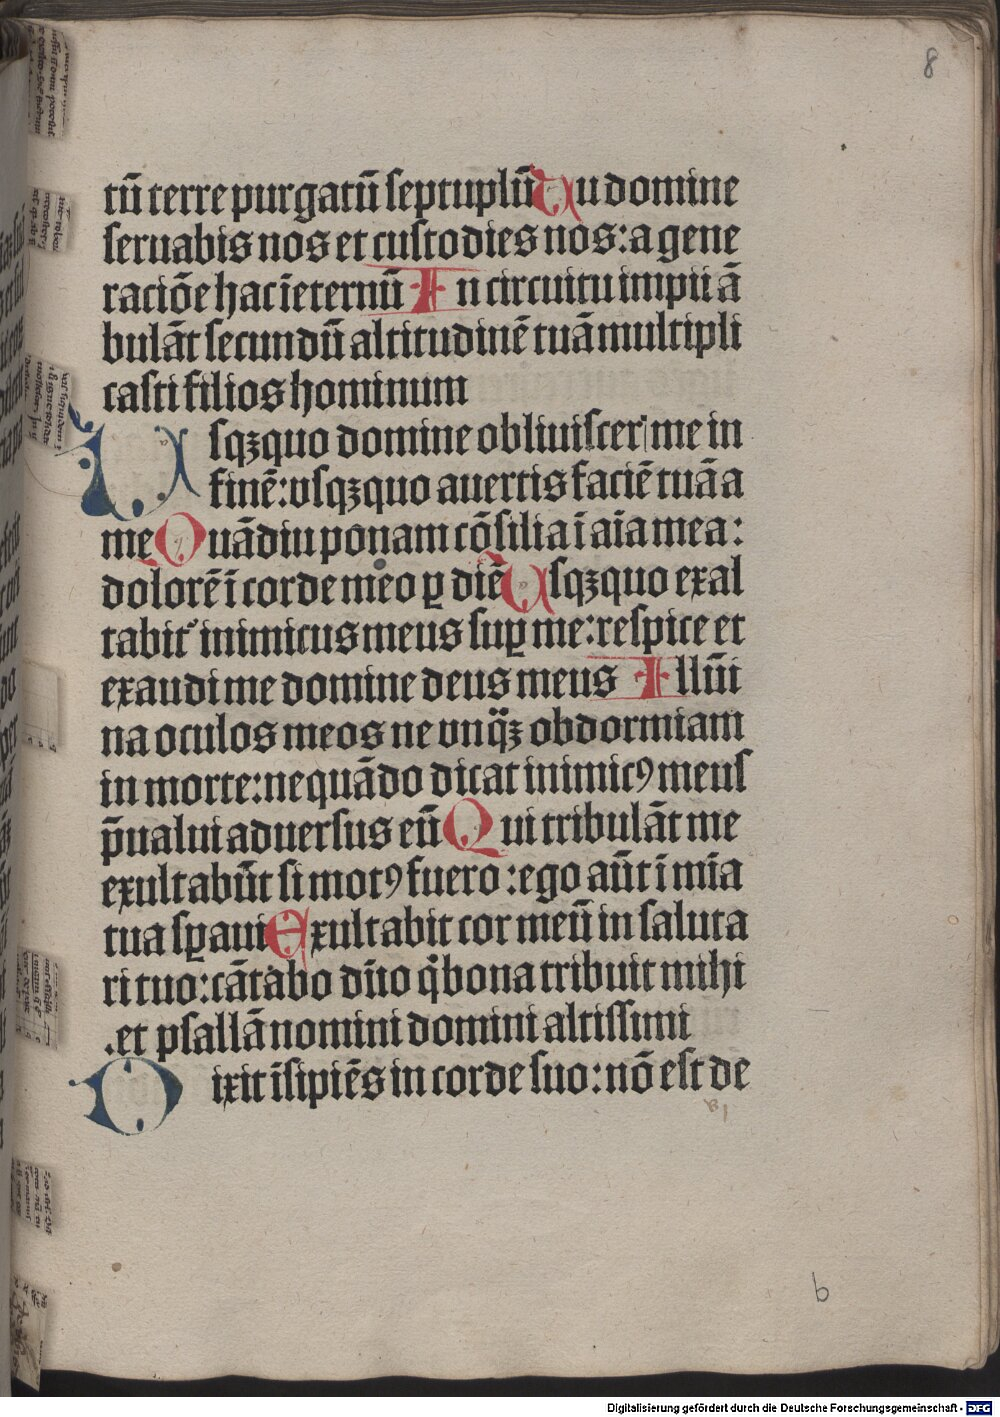 8
tū terre purgatū septuplū Tu domine
seruabis nos et custodies nos: a gene
raciōe hac ī eternū In circuitu impii ā
bulāt secundū altitudinē tuā multipli
casti filios hominum
Vsqꝫquo domine obliuisceri me in
finē: vsqꝫquo auertis faciē tuā a
me Quādiu ponam cōsilia ī aīa mea:
dolorē ī corde meo ꝑ diē Vsqꝫquo exal
tabit᷑ inimicus meus suꝑ me: respice et
exaudi me domine deus meus Illūi
na oculos meos ne vnq̄ꝫ obdormiam
in morte: nequādo dicat inimicꝰ meus
p̄ualui aduersus eū Qui tribulāt me
exultabūt si motꝰ fuero: ego aūt ī mīa
tua sꝑaui Exultabit cor meū in saluta
ri tuo: cātabo dn̄o q̇ bona tribuit mihi
.et psallā nomini domini altissimi
Dixit īsipiēs in corde suo: nō est de
b
Digitalisierung gefördert durch die Deutsche Forschungsgemeinschaft - DFG